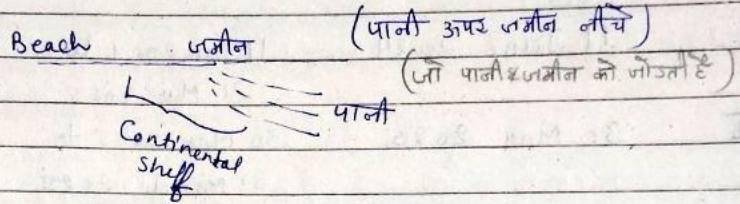 Beach जमीन (पानी ऊपर जमीन नीचे)
(जो पानी & जमीन को जोडती है)
पानी
Continental
Shelf